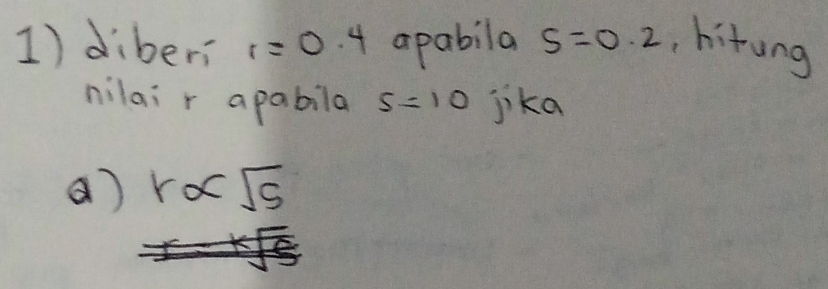 1) diberi r=0.4 apabila s=0.2, hitung
nilai r apabila s=10 jika
a) r∝√s